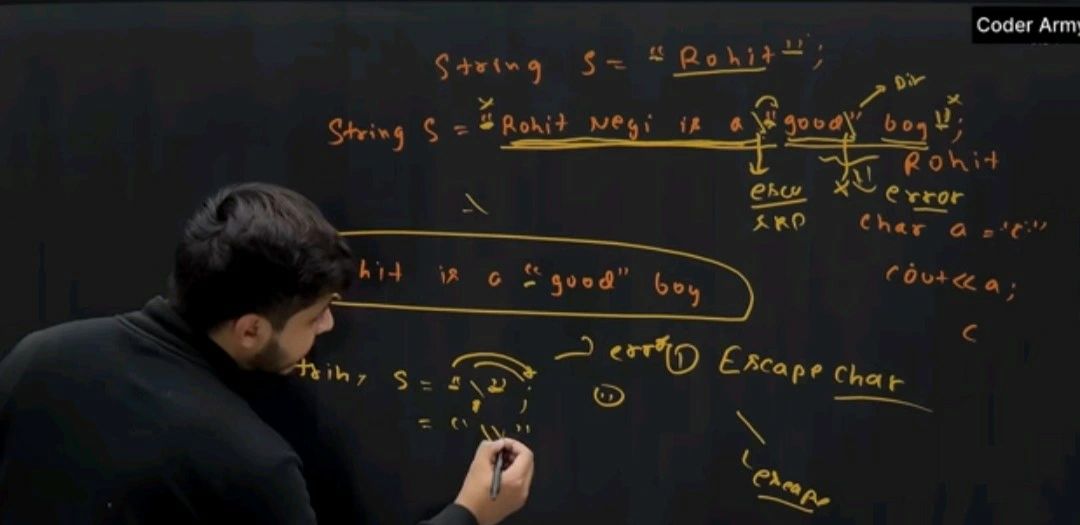 Coder Army
String S = "Rohit";
String S = "Rohit Negi is a \"good\" boy";
Dir
Rohit
error
char a = "c"
cout<<a;
c
hit is a "good" boy
S = "\";
error
① Escape char
= "\\"
escape